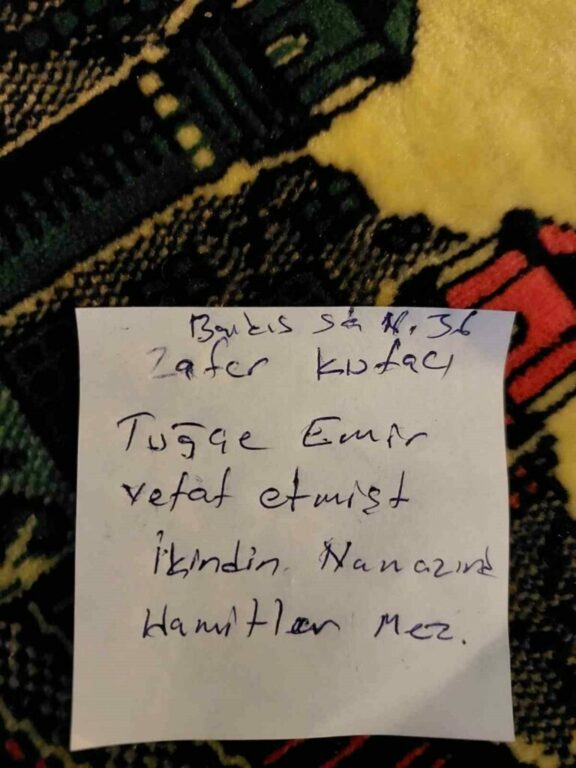 Barkıs sk N. 36
Zafer Kufacı
Tuğçe Emir
vefat etmişt
İkindin Namazınd
Hamitler Mez.